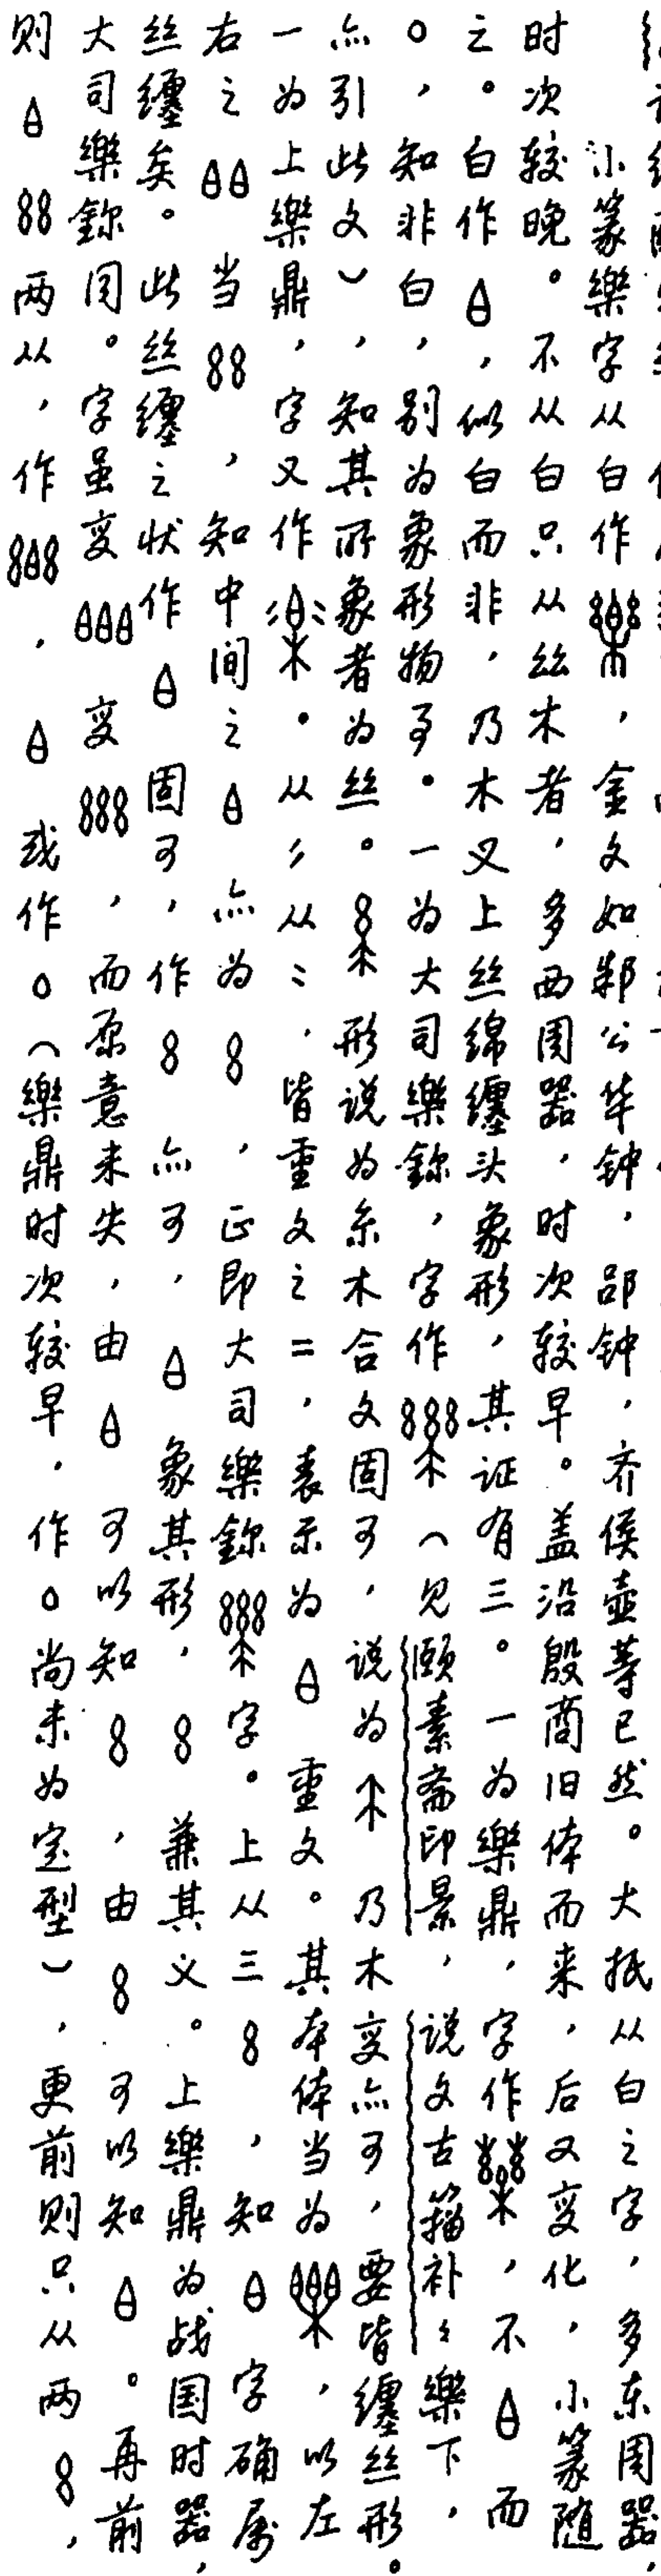 小篆樂字从白作，金文如邾公华钟，郘钟，齐侯壶等已然。大抵从白之字，多东周器，
时次较晚。不从白只从丝木者，多西周器，时次较早。盖沿殷商旧体而来，后又变化，小篆随
之。白作，似白而非，乃木叉上丝绵缠头象形，其证有三。一为樂鼎，字作，不而
〇，知非白，别为象形物事。一为大司樂鉨，字作（见颐素斋印景，说文古籀补补樂下，
亦引此文），知其所象者为丝。形说为糸木合文固可，说为乃木变亦可，要皆缠丝形。
一为上樂鼎，字又作。从彡从〻，皆重文之二，表示为重文。其本体当为，以左
右之当，知中间之亦为，正即大司樂鉨字。上从三，知字确属
丝缠矣。此丝缠之状作固可，作亦可，象其形，兼其义。上樂鼎为战国时器，
大司樂鉨同。字虽变变，而原意未失，由可以知，由可以知。再前
则两从，作，或作〇（樂鼎时次较早，作〇尚未为定型），更前则只从两，